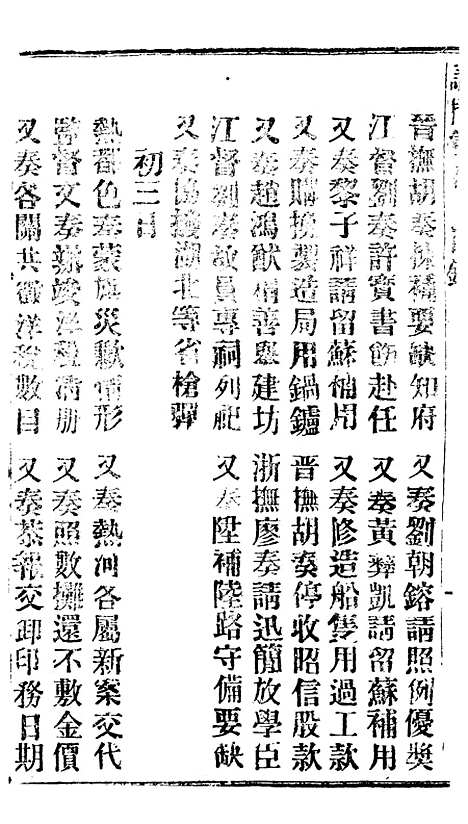 晉撫胡奏揀補要缺知府
又奏劉朝鎔請照例優獎
江督劉奏許寶書飭赴任
又奏黃彝凱請留蘇補用
又奏黎子祥請留蘇補用
又奏修造船隻用過工款
又奏購換製造局用鍋鑪
晉撫胡奏停收昭信股款
又奏趙鴻猷捐善舉建坊
浙撫廖奏請迅簡放學臣
江督劉奏故員專祠列祀
又奏陞補陸路守備要缺
又奏協撥湖北等省槍彈
初三日
熱都色奏蒙旗災歉情形
又奏熱河各屬新案交代
監督文奏報竣洋稅清册
又奏照數攤還不敷金價
又奏各關共徵洋稅數目
又奏恭報交卸印務日期